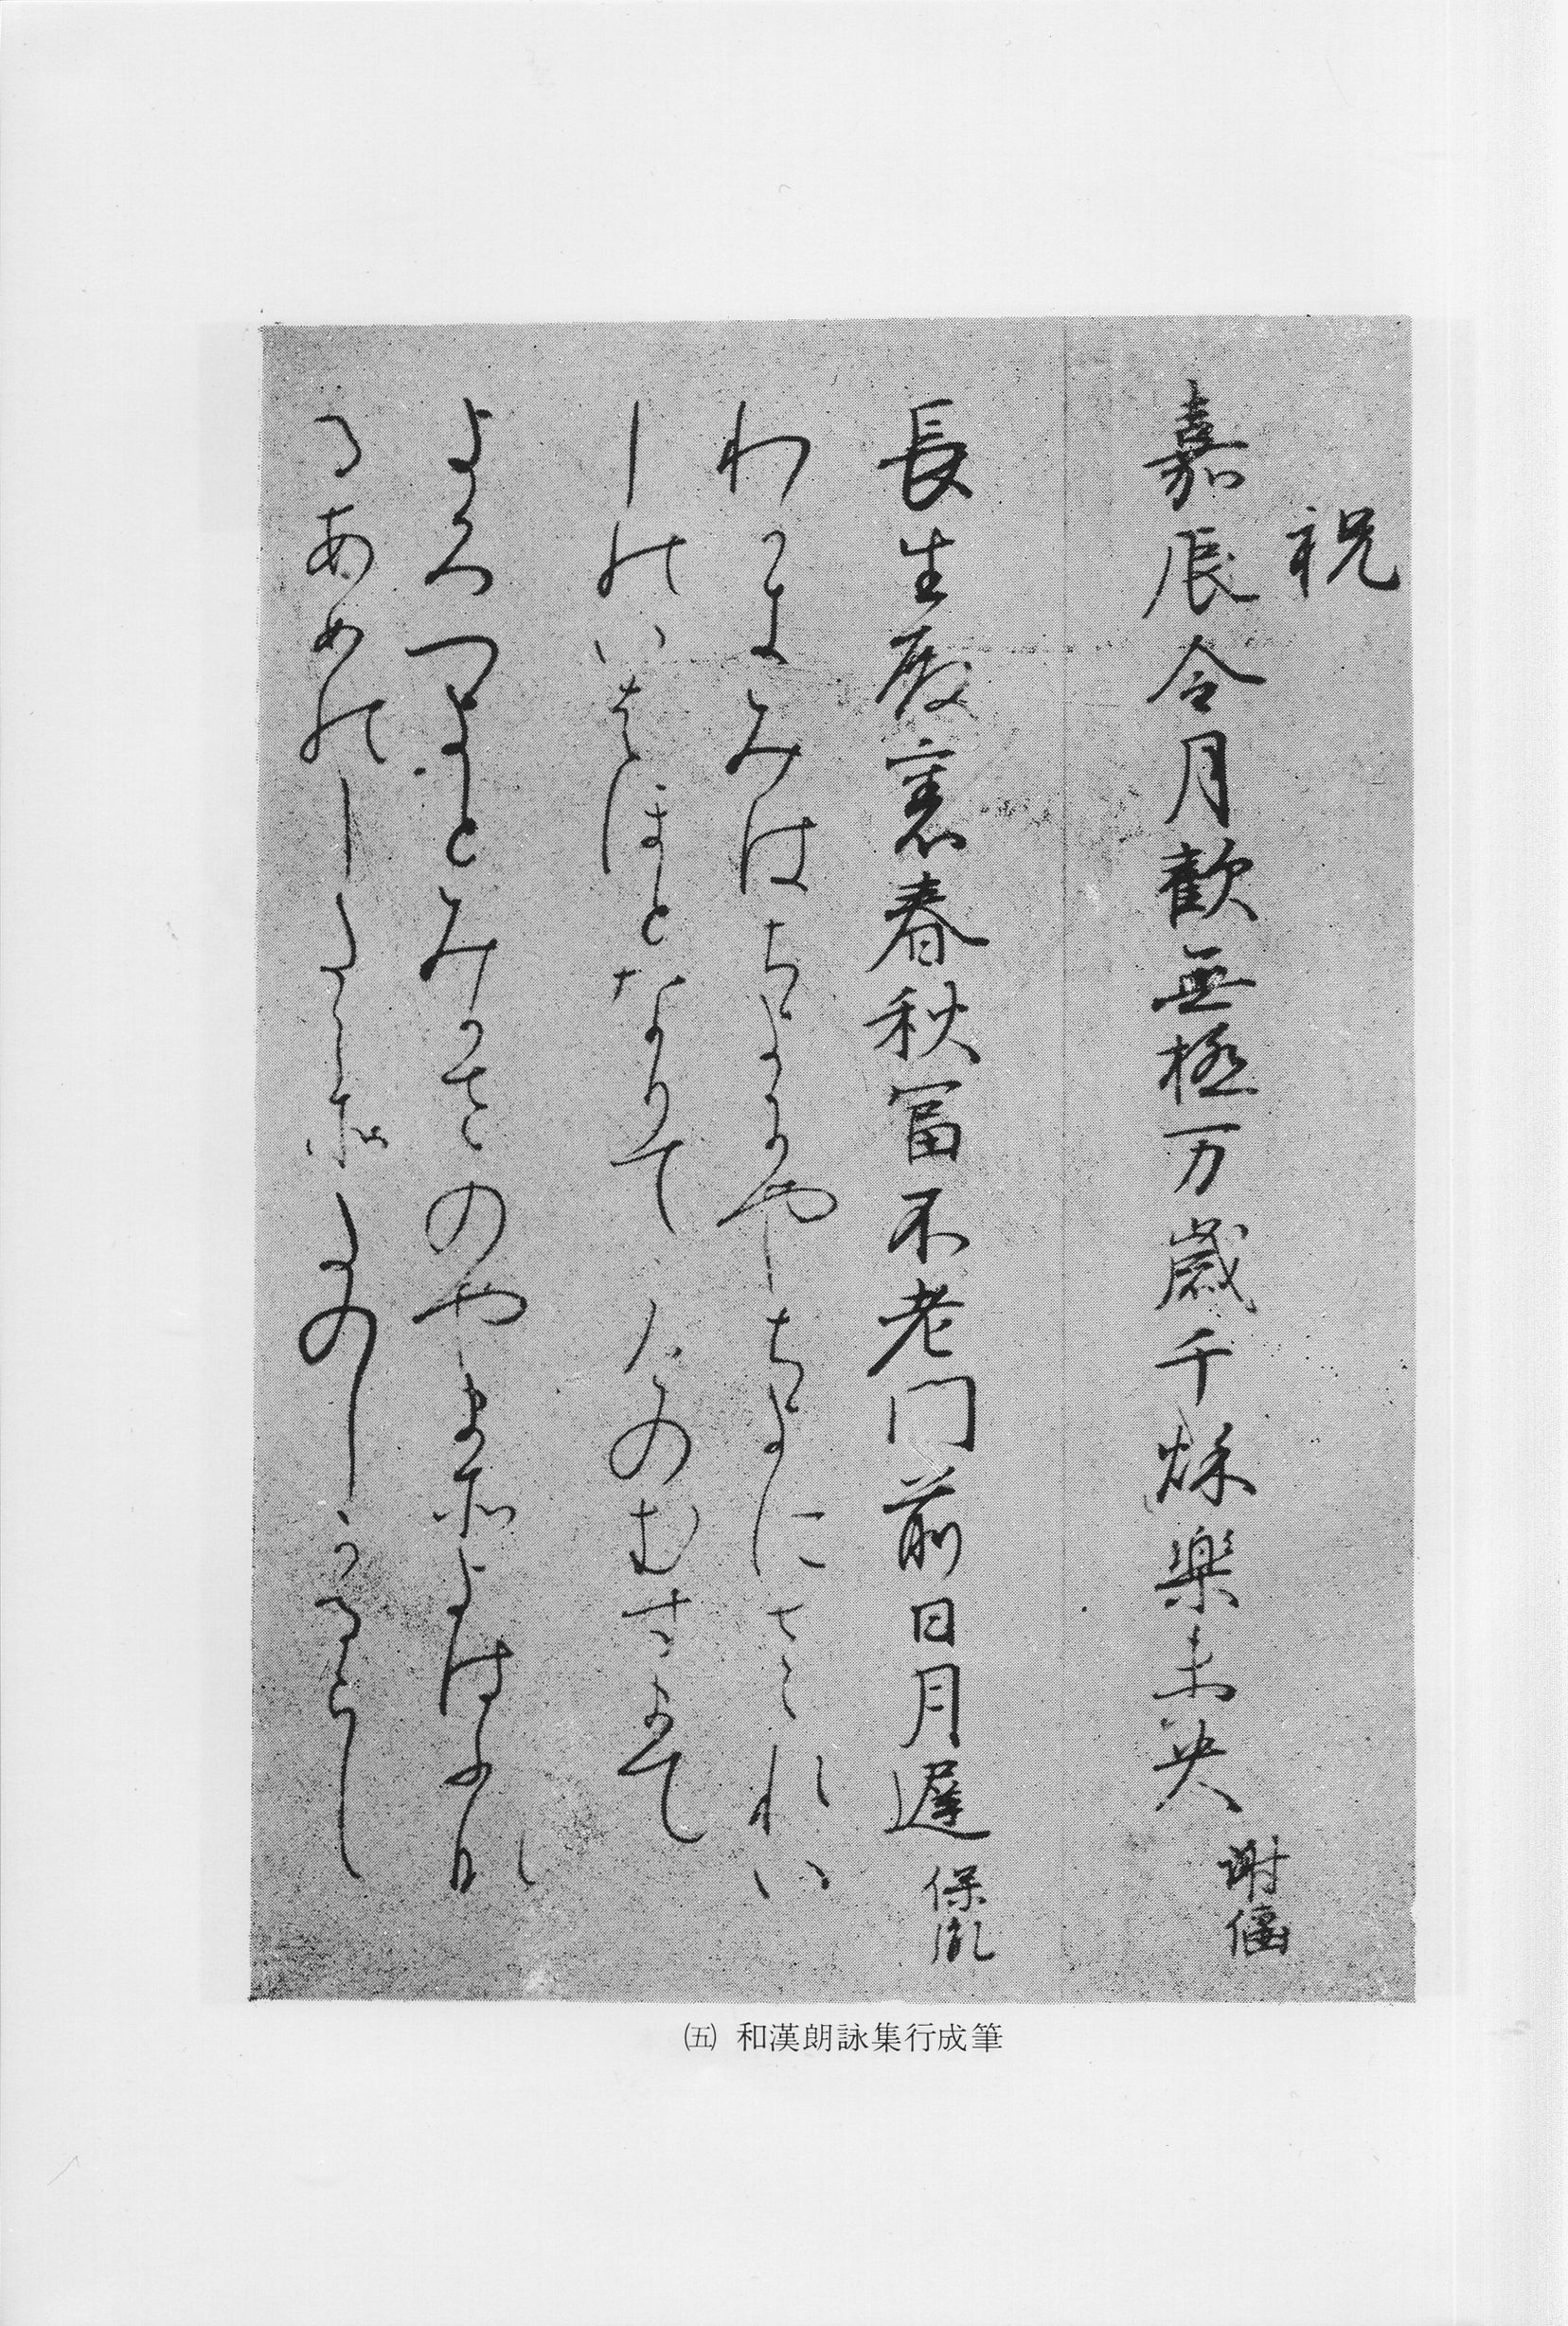 祝
嘉辰令月歡無極万歳千秌樂未央 謝偃
長生殿裏春秋冨不老門前日月遅 保胤
わかきみはちよにやちよにさゝれい
しのいはほとなりてこけのむすまて
よろつよとみかさのやまそよはふな
るあめのしたこそたのしかるらし
㈤ 和漢朗詠集行成筆